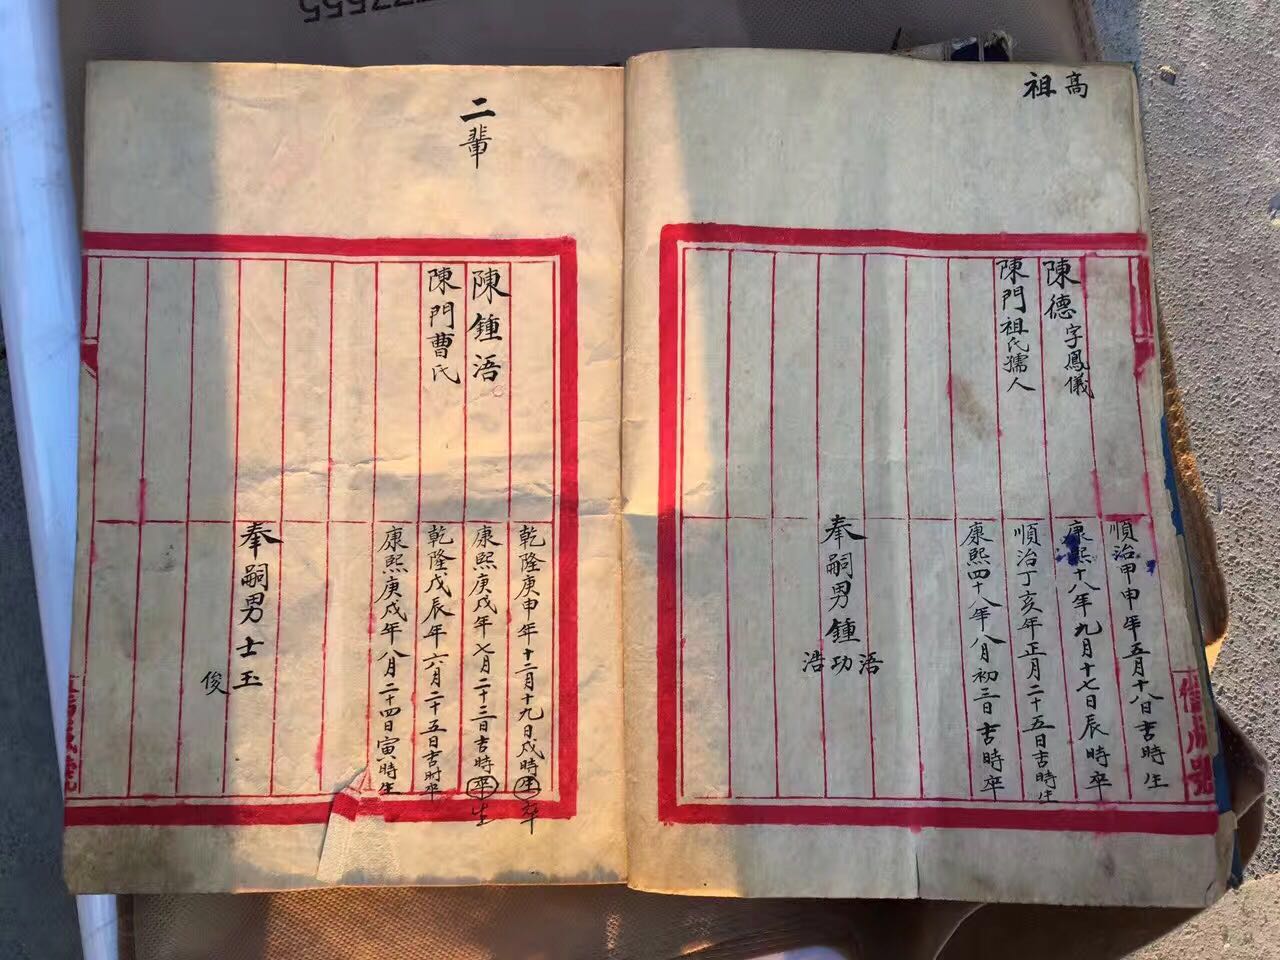 高
祖
陳德字鳳儀
陳門祖氏孺人
順治甲申年五月十八日吉時生
康熙十八年九月十七日辰時卒
順治丁亥年正月二十五日吉時生
康熙四十八年八月初三日吉時卒
奉嗣男鍾
浯
功
浩
二輩
陳鍾浯
陳門曹氏
乾隆庚申年十二月十九日戌時生卒
康熙庚戌年七月二十三日吉時卒生
乾隆戊辰年六月二十五日吉时卒
康熙庚戌年八月二十四日寅時生
奉嗣男士玉
俊